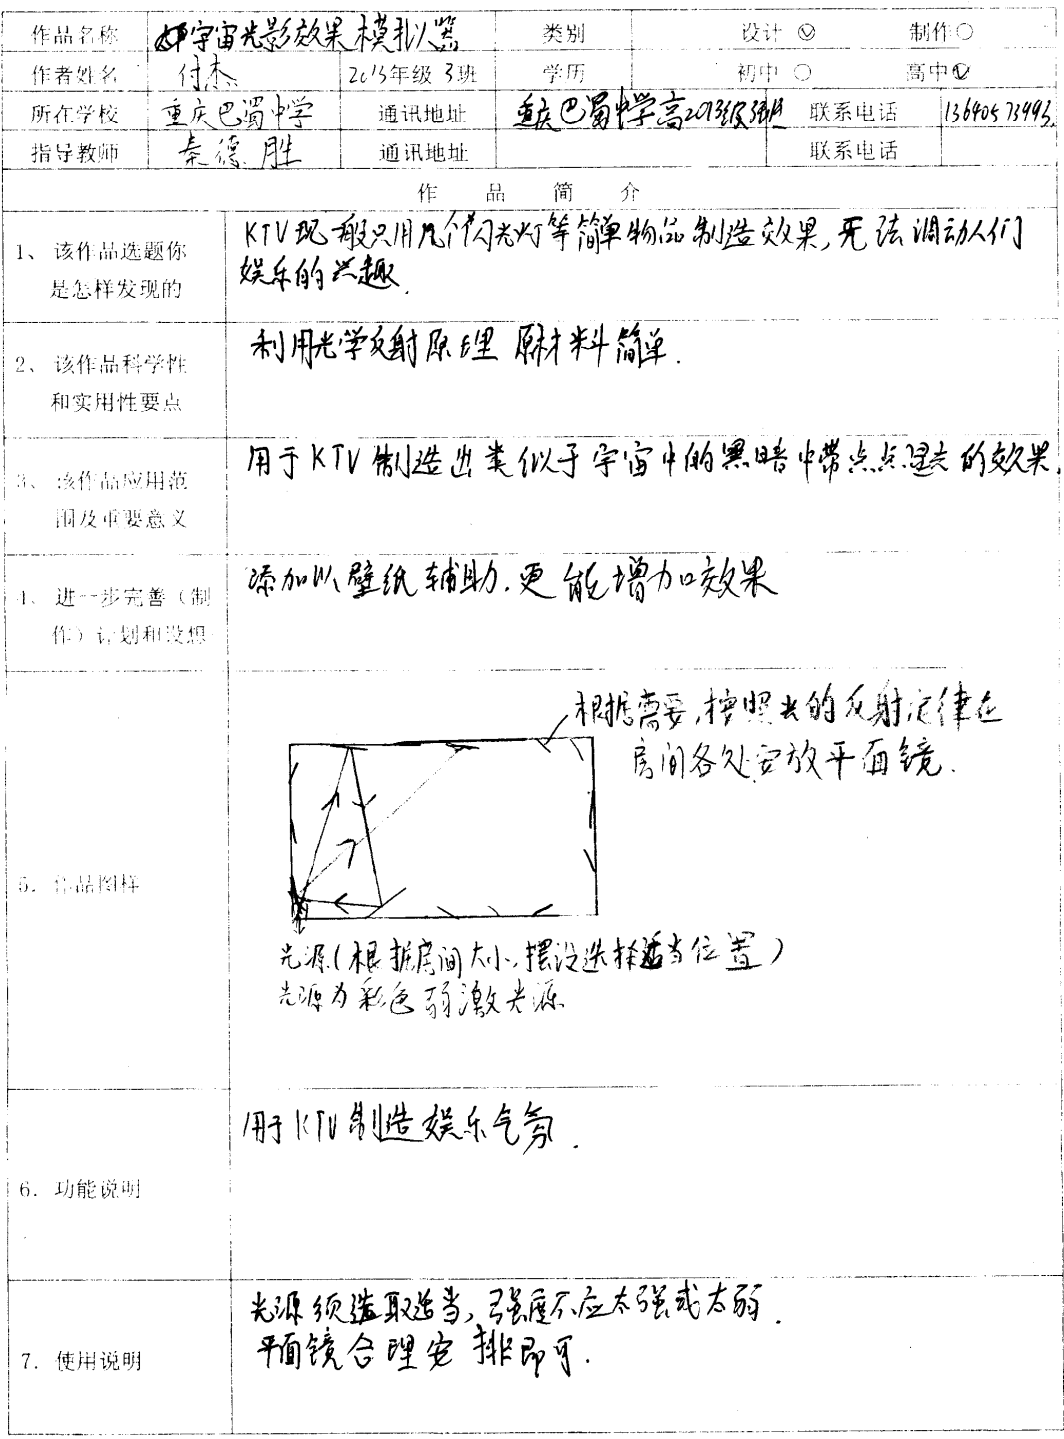 作品名称 宇宙光影效果模拟器 类别 设计 制作
作者姓名 付杰 2013年级 3班 学历 初中 高中
所在学校 重庆巴蜀中学 通讯地址 重庆巴蜀中学高2013级3班 联系电话 13640573993
指导教师 秦德胜 通讯地址 联系电话
作品简介
1、该作品选题你
是怎样发现的
KTV现一般只用几个闪光灯等简单物品制造效果,无法调动人们
娱乐的兴趣.
2、该作品科学性
和实用性要点
利用光学反射原理 原材料简单.
3、该作品应用范
围及重要意义
用于KTV制造出类似于宇宙中的黑暗中带点点星光的效果.
4、进一步完善(制
作)计划和设想
添加以壁纸辅助.更能增加效果
5. 作品图样
根据需要,按照光的反射定律在
房间各处安放平面镜.
光源(根据房间大小,摆设选择适当位置)
光源为彩色弱激光源
6. 功能说明
用于KTV制造娱乐气氛.
7. 使用说明
光源须选取适当,强度不应太强或太弱.
平面镜合理安排即可.